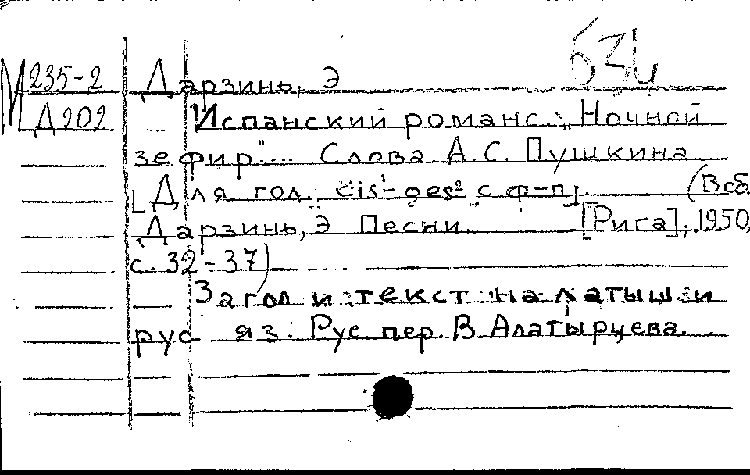 634
М 235-2 Дарзинь, Э
Д 202 "Испанский романс: „Ночной
зефир"... Слова А. С. Пушкина
[Для гол. cis¹-ges² с ф-п]. (В сб.
Дарзинь, Э Песни. [Рига], 1950,
с. 32-37)
Загол и текст на латыш и
рус яз. Рус пер. В. Алатырцева.